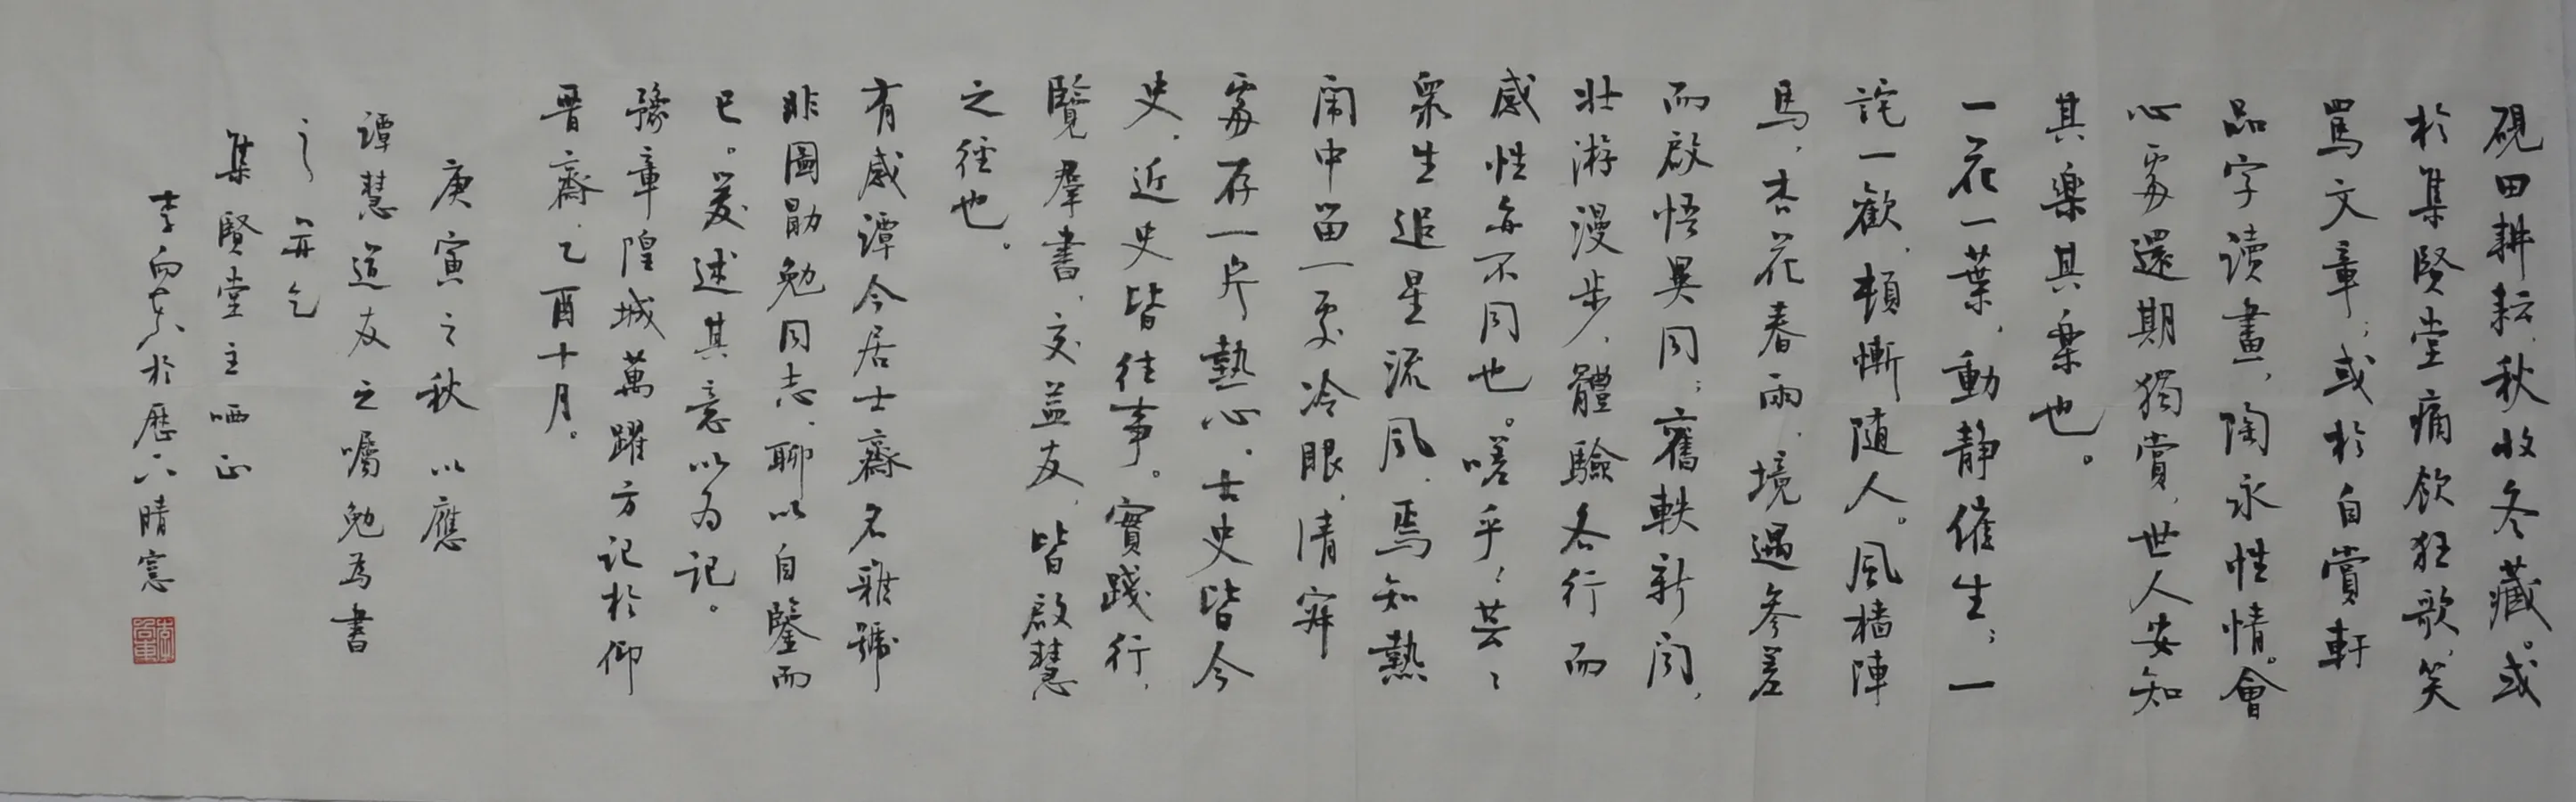 硯田耕耘，秋收冬藏。或
於集賢堂痛飲狂歌，笑
罵文章；或於自賞軒
品字讀畫，陶泳性情。會
心處還期獨賞，世人安知
其樂其樂也。
一花一葉，動靜催生；一
詫一歡，頓慚隨人。風檣陣
馬，杏花春雨，境遇參差
而啟悟異同；舊軼新聞，
壯游漫步，體驗各行而
感性亦不同也。嗟乎，芸芸
眾生追星流風，焉知熱
鬧中留一處冷眼，清寂
處存一片熱心。古史皆今
史，近史皆往事。實踐行，
覽羣書，交益友，皆啟慧
之徑也。
有感譚今居士齋名雅號
非圖勖勉同志，聊以自鑒而
已。爰述其意以為記。
豫章隍城萬躍方記於仰
晋齋，乙酉十月。
庚寅之秋 以應
譚慧道友之囑勉為書
之 並乞
集賢堂主哂正
李向東於歷下晴窗